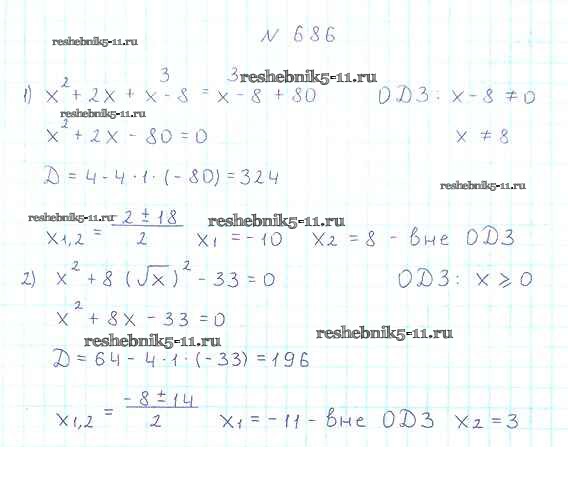 reshebnik5-11.ru № 686
1) x² + 2x + 3/x-8 = 3/x-8 + 80 ОДЗ: x - 8 ≠ 0
reshebnik5-11.ru
reshebnik5-11.ru
x² + 2x - 80 = 0 x ≠ 8
D = 4 - 4 · 1 · (-80) = 324
reshebnik5-11.ru
reshebnik5-11.ru reshebnik5-11.ru
x1,2 = 2 ± 18 / 2 x1 = -10 x2 = 8 - вне ОДЗ
2) x² + 8 (√x)² - 33 = 0 ОДЗ: x ⩾ 0
x² + 8x - 33 = 0
reshebnik5-11.ru reshebnik5-11.ru
D = 64 - 4 · 1 · (-33) = 196
x1,2 = -8 ± 14 / 2 x1 = -11 - вне ОДЗ x2 = 3